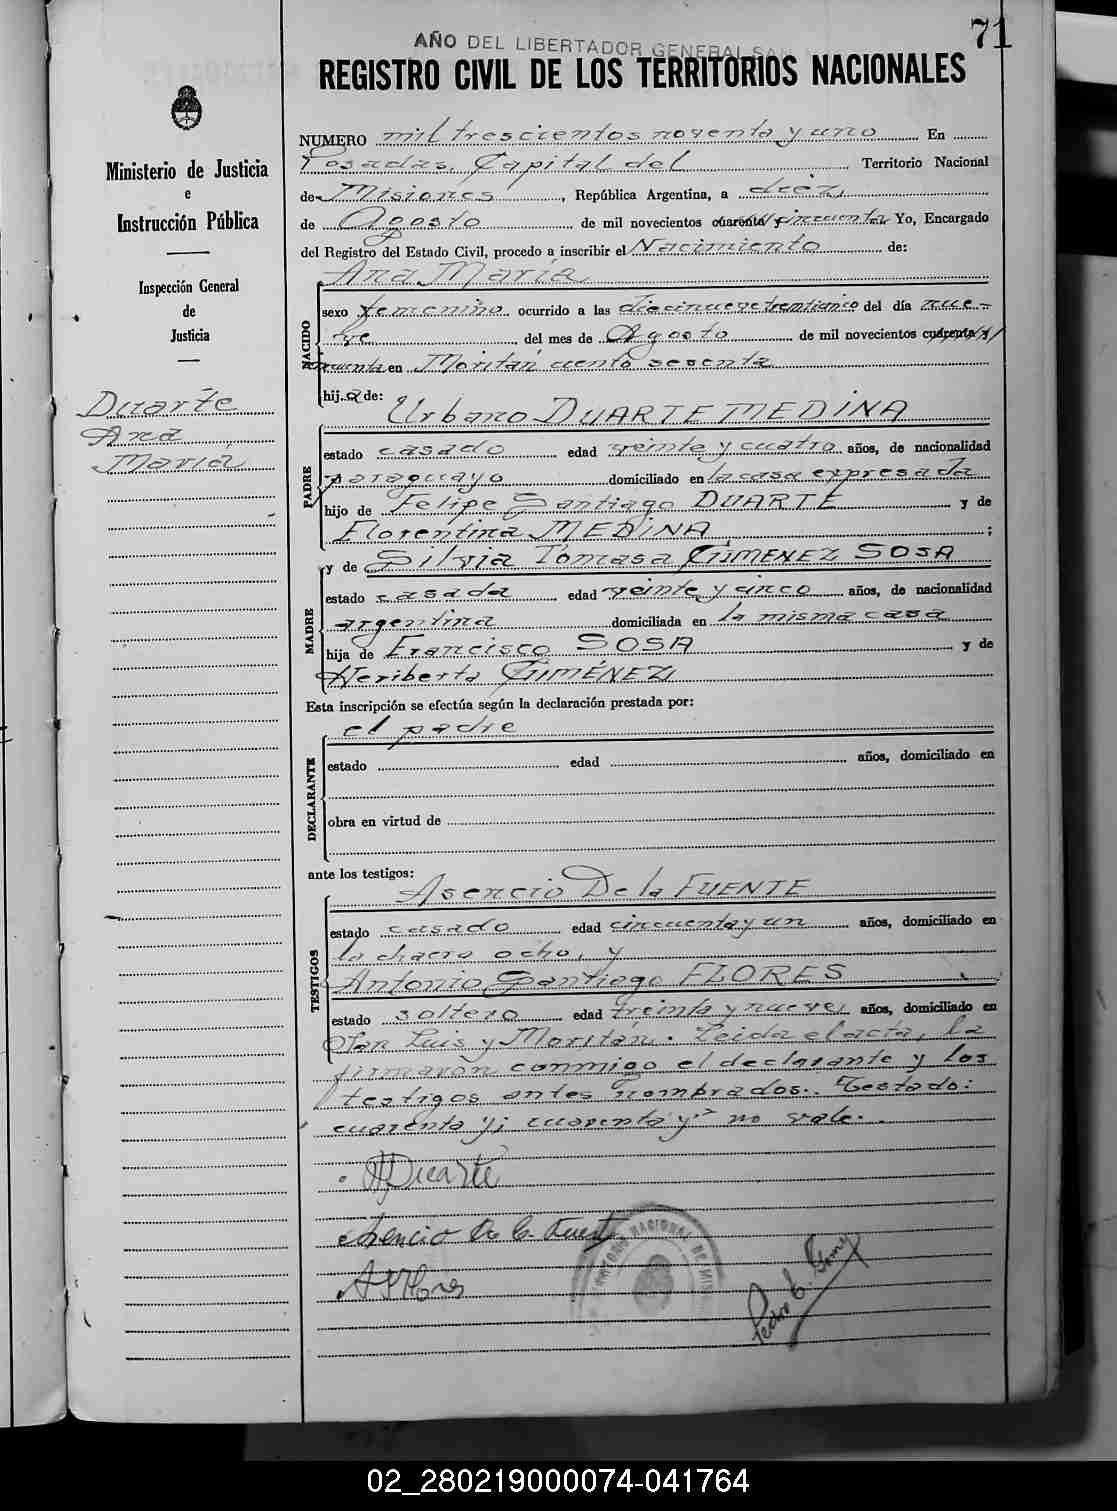 71
AÑO DEL LIBERTADOR GENERAL SAN
REGISTRO CIVIL DE LOS TERRITORIOS NACIONALES
Ministerio de Justicia
e
Instrucción Pública
Inspección General
de
Justicia
Duarte
Ana
María
NUMERO mil trescientos noventa y uno En
Posadas, Capital del Territorio Nacional
de Misiones, República Argentina, a diez,
de Agosto de mil novecientos cuarenta y cincuenta Yo, Encargado
del Registro del Estado Civil, procedo a inscribir el Nacimiento de:
Ana María
NACIDO
sexo femenino ocurrido a las diecinueve treinticinco del día nue-
ve del mes de Agosto de mil novecientos cuarenta y
cincuenta en Moritán ciento sesenta
hija de: Urbano DUARTE MEDINA
PADRE
estado casado edad veinte y cuatro años, de nacionalidad
paraguayo domiciliado en la casa expresada
hijo de Felipe Santiago DUARTE y de
Florentina MEDINA ;
y de Silvia Tomasa GIMENEZ SOSA
MADRE
estado casada edad veinte y cinco años, de nacionalidad
argentina domiciliada en la misma casa
hija de Francisco SOSA y de
Heriberta GIMÉNEZ
Esta inscripción se efectúa según la declaración prestada por:
el padre
DECLARANTE
estado edad años, domiciliado en
obra en virtud de
ante los testigos:
Asencio De la FUENTE
TESTIGOS
estado casado edad cincuenta y un años, domiciliado en
la chacra ocho, y
Antonio Santiago FLORES
estado soltero edad treinta y nueve, años, domiciliado en
San Luis y Moritán. Leida el acta, la
firmaron conmigo el declarante y los
testigos antes nombrados. Testado:
cuarenta y; cuarenta y" no vale.
Duarte
Asencio De la Fuente
A S Flores
TERRITORIO NACIONAL DE MISIONES
Pedro C. Gomez
02_280219000074-041764